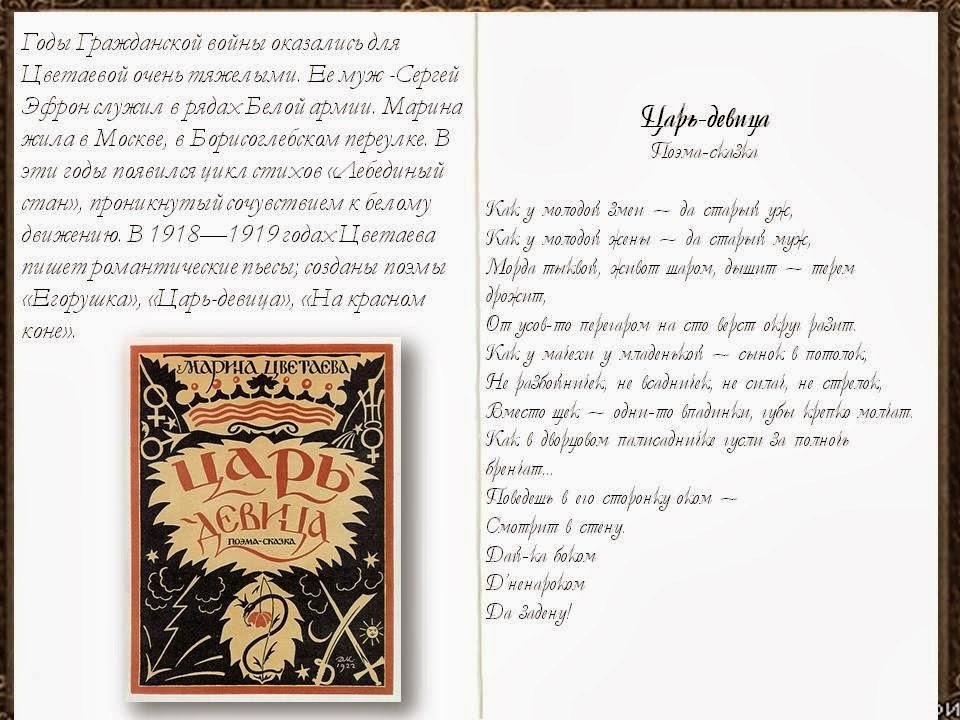 Годы Гражданской войны оказались для
Цветаевой очень тяжелыми. Ее муж -Сергей
Эфрон служил в рядах Белой армии. Марина
жила в Москве, в Борисоглебском переулке. В
эти годы появился цикл стихов «Лебединый
стан», проникнутый сочувствием к белому
движению. В 1918—1919 годах Цветаева
пишет романтические пьесы; созданы поэмы
«Егорушка», «Царь-девица», «На красном
коне».
МАРИНА ЦВЕТАЕВА
ЦАРЬ
ДЕВИЦА
ПОЭМА-СКАЗКА
ДМ
1922
Царь-девица
Поэма-сказка
Как у молодой змеи – да старый уж,
Как у молодой жены – да старый муж,
Морда тыквой, живот шаром, дышит – терем
дрожит,
От усов-то перегаром на сто верст округ разит.
Как у мачехи у младенькой – сынок в потолок,
Не разбойничек, не всадничек, не силач, не стрелок,
Вместо щек – одни-то впадинки, губы крепко молчат.
Как в дворцовом палисадничке гусли за полночь
бренчат...
Поведешь в его сторонку оком –
Смотрит в стену.
Дай-ка боком
Д'ненароком
Да задену!